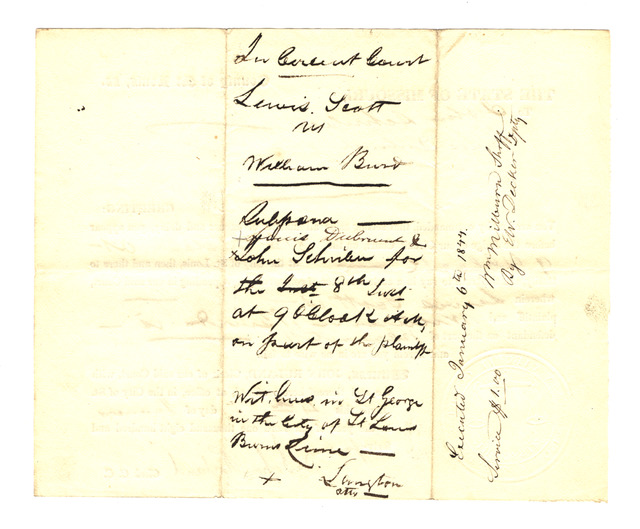 In Circuit Court
Lewis Scott
vs
William Burd
Subpoena
Louis &
John for
the Inst 8th Inst
at 9 O'Cloak A.M.
on part of the plaintff
Wit. lives in St George
in the City of St Louis
Burns Lime
x
atty
Executed January 6th 1844.
Wm Milburn Shff
By Decker Dpty
Service $1.00